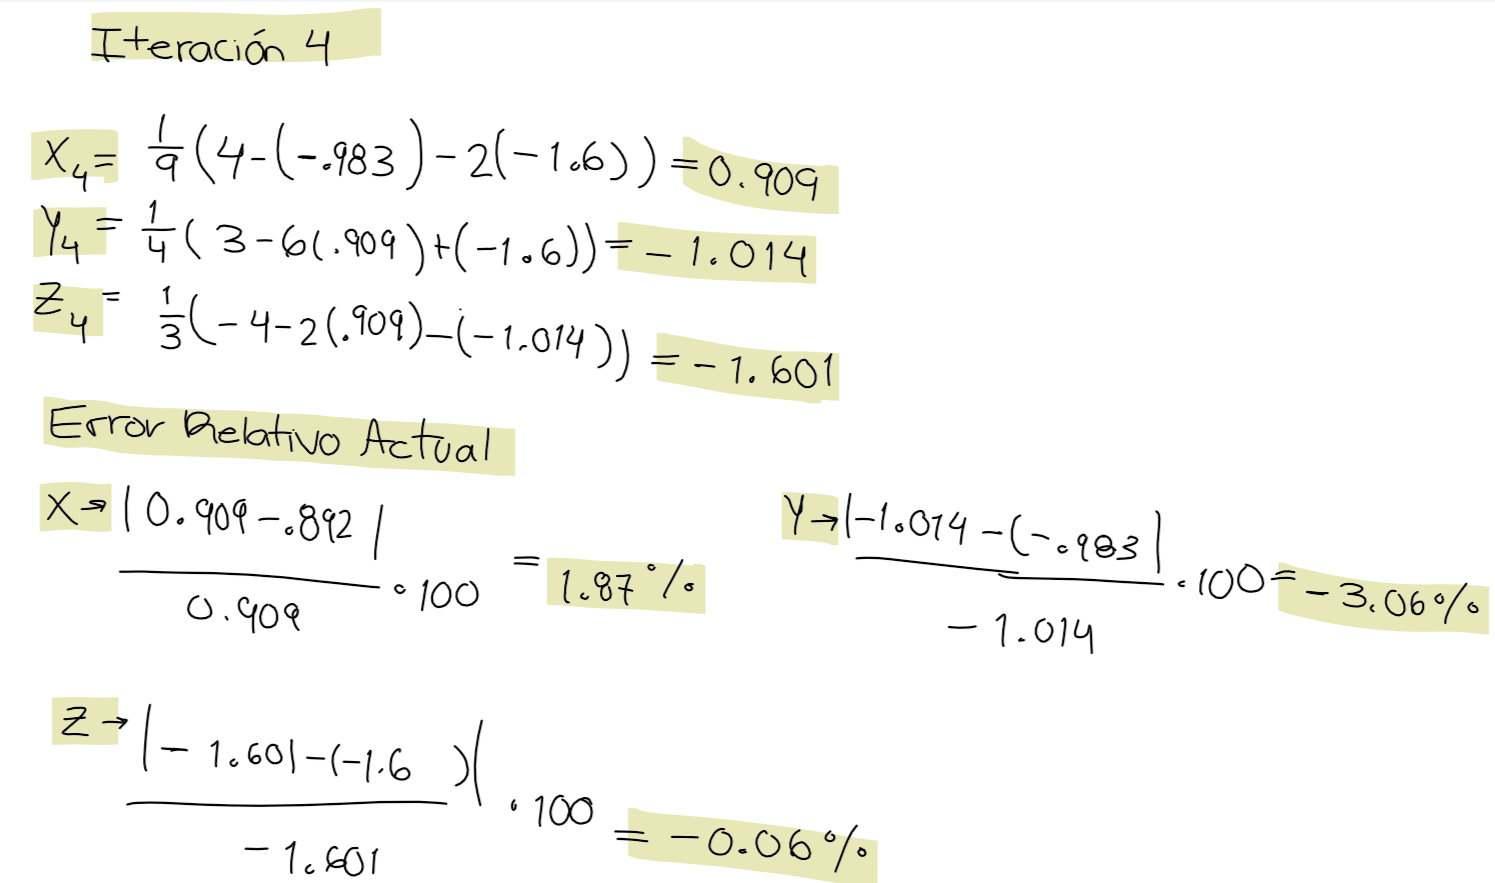 Iteración 4
X₄ = 1/9 (4-(-.983)-2(-1.6)) = 0.909
Y₄ = 1/4 (3-6(.909)+(-1.6)) = -1.014
Z₄ = 1/3 (-4-2(.909)-(-1.014)) = -1.601
Error Relativo Actual
X→ |0.909-.892| / 0.909 · 100 = 1.87%
Y→ |-1.014-(-.983| / -1.014 · 100 = -3.06%
Z→ |-1.601-(-1.6)| / -1.601 · 100 = -0.06%